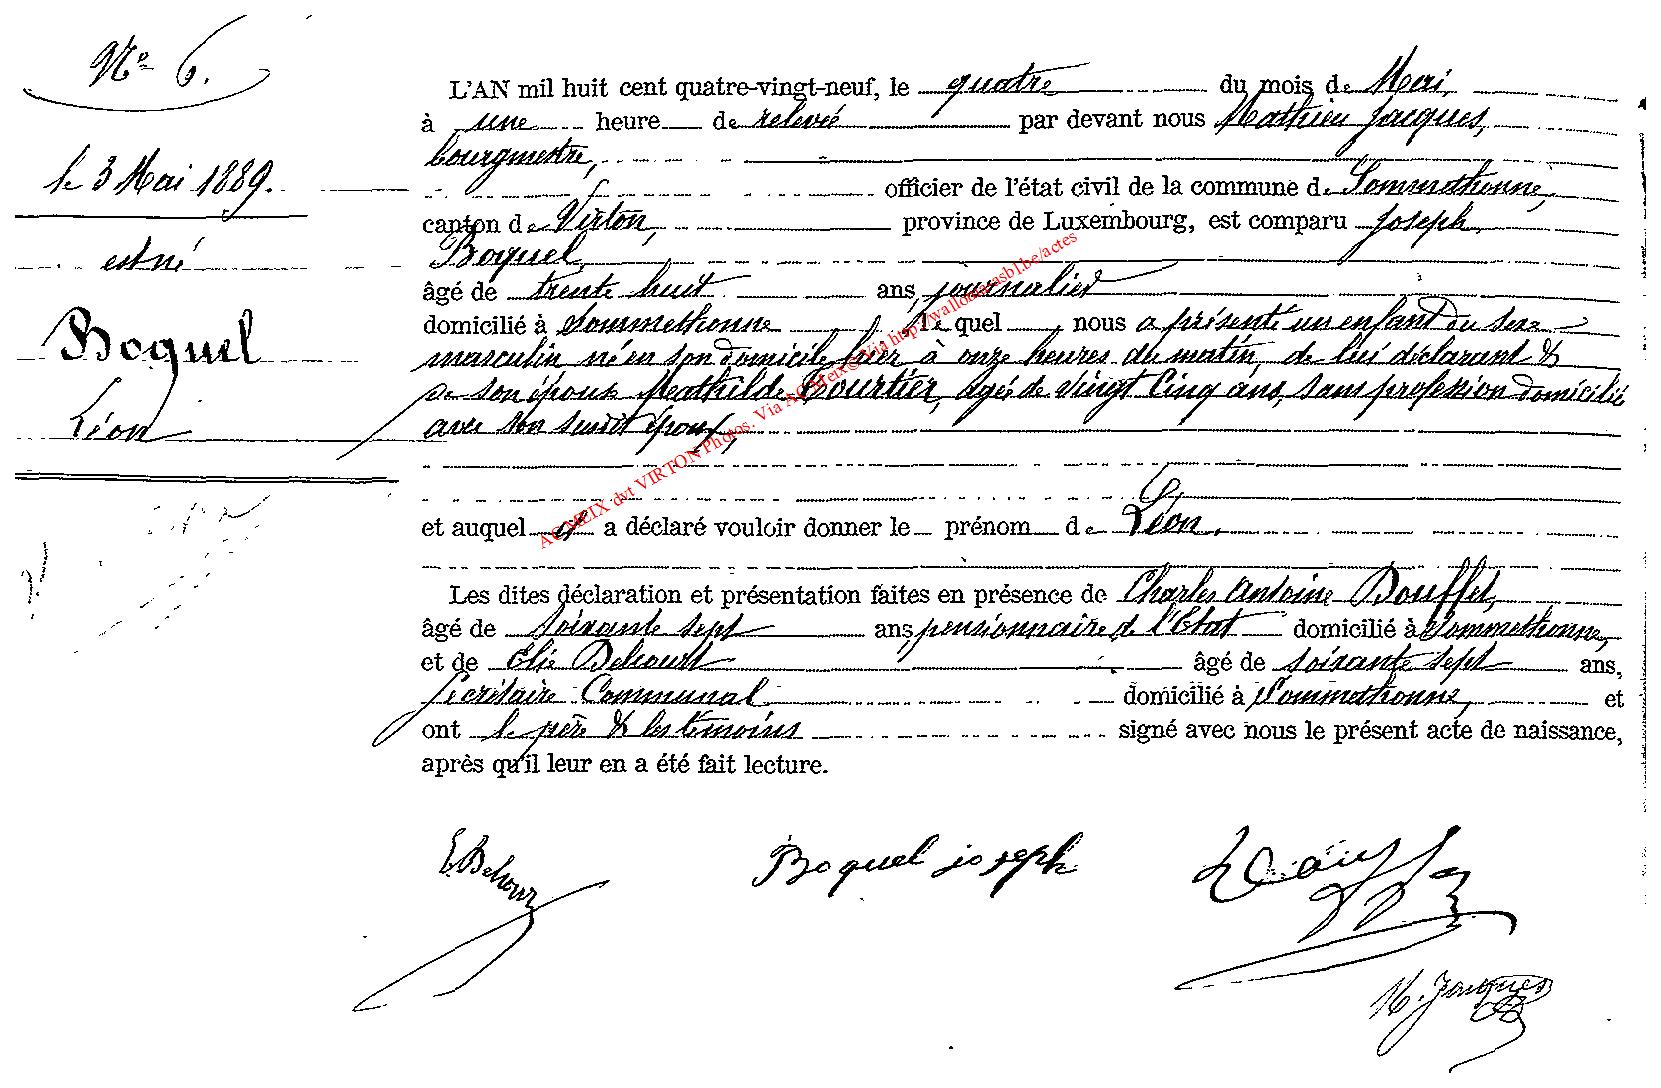 N° 6.
le 3 Mai 1889.
est né
Boquel
Léon
L'AN mil huit cent quatre-vingt-neuf, le quatre du mois de Mai,
à une heure de relevée par devant nous Mathieu Jacques,
bourgmestre,
officier de l'état civil de la commune de Sommethonne,
canton de Virton, province de Luxembourg, est comparu Joseph
Boquel,
âgé de trente huit ans, journalier
domicilié à Sommethonne, le quel nous a présenté un enfant du sexe
masculin né en son domicile hier à onze heures du matin, de lui déclarant &
de son épouse Mathilde Bourtier, agée de vingt cinq ans, sans profession domiciliée
avec son susdit époux,
et auquel il a déclaré vouloir donner le prénom de Léon.
Les dites déclaration et présentation faites en présence de Charles Antoine Bouffet,
âgé de soixante sept ans, pensionnaire de l'Etat domicilié à Sommethonne,
et de Elie Behourt âgé de soixante sept ans,
Secrétaire Communal domicilié à Sommethonne, et
ont le père & les témoins signé avec nous le présent acte de naissance,
après qu'il leur en a été fait lecture.
Boquel joseph
M. Jacques
AC MEIX dvt VIRTON Photos. Via
via http://wallonia-asbl.be/actes